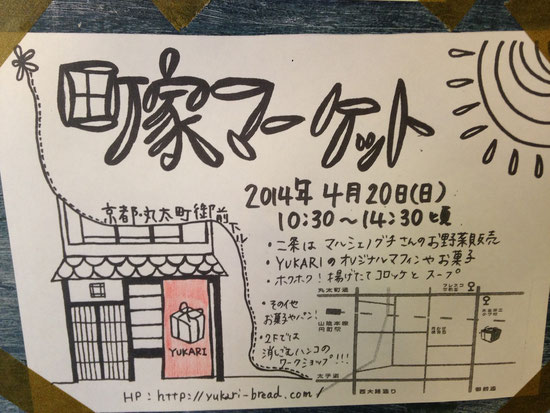 町家マーケット
2014年 4月20日(日)
10:30〜14:30頃
京都・丸太町御前下ル
・二条は マルシェノグチさんのお野菜販売
・YUKARIのオリジナルマフィンやお菓子
・ホクホク！揚げたてコロッケと スープ
・その他
お菓子やパン！
・2Fでは
消しゴムハンコの
ワークショップ!!!
YUKARI
丸太町通
フレスコ
山陰本線
円町駅
太子道
西大路通り
御前通
HP：http://yukari-bread.com/